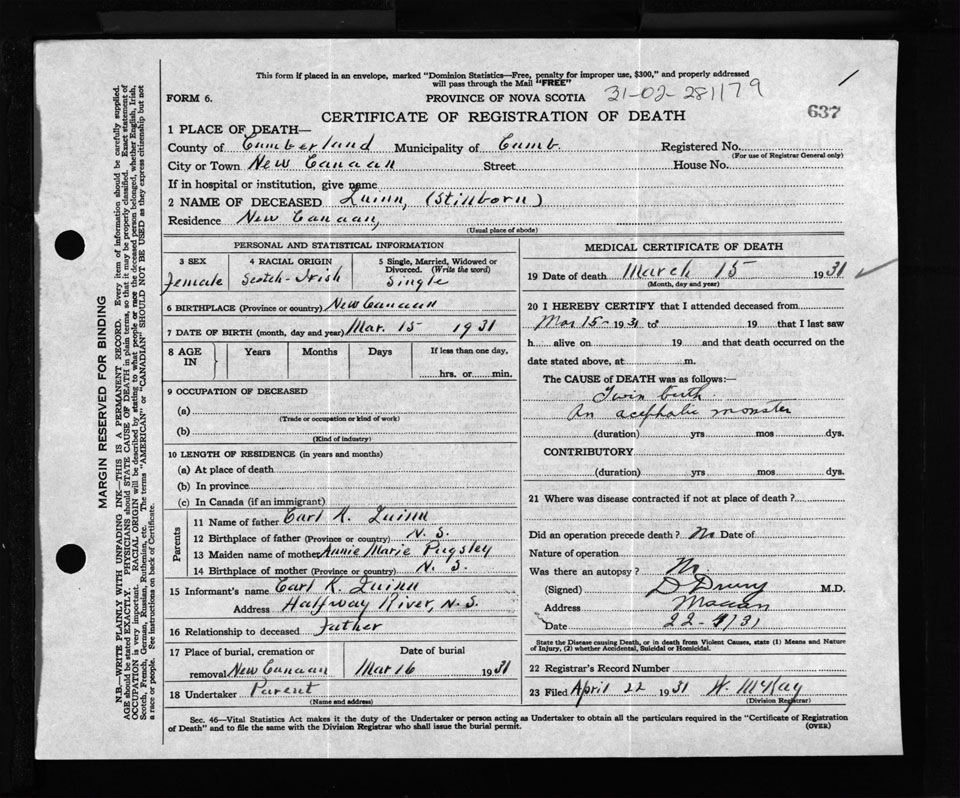 This form if placed in an envelope, marked "Dominion Statistics—Free, penalty for improper use, $300," and properly addressed
will pass through the Mail "FREE"
31-02-281179
FORM 6.
PROVINCE OF NOVA SCOTIA
637
CERTIFICATE OF REGISTRATION OF DEATH
1 PLACE OF DEATH—
County of Cumberland Municipality of Cumb. Registered No.
(For use of Registrar General only)
City or Town New Canaan Street House No.
If in hospital or institution, give name
2 NAME OF DECEASED Quinn, (Stillborn)
Residence New Canaan,
(Usual place of abode)
PERSONAL AND STATISTICAL INFORMATION
3 SEX
Female
4 RACIAL ORIGIN
Scotch-Irish
5 Single, Married, Widowed or
Divorced. (Write the word)
Single
6 BIRTHPLACE (Province or country) New Canaan
7 DATE OF BIRTH (month, day and year) Mar. 15 1931
8 AGE
IN
Years
Months
Days
If less than one day,
hrs. or min.
9 OCCUPATION OF DECEASED
(a)
(Trade or occupation or kind of work)
(b)
(Kind of industry)
10 LENGTH OF RESIDENCE (in years and months)
(a) At place of death
(b) In province
(c) In Canada (if an immigrant)
Parents
11 Name of father Earl K. Quinn
12 Birthplace of father (Province or country) N. S.
13 Maiden name of mother Annie Marie Pugsley
14 Birthplace of mother (Province or country) N. S.
15 Informant's name Earl K. Quinn
Address Halfway River, N. S.
16 Relationship to deceased Father
17 Place of burial, cremation or
removal New Canaan
Date of burial
Mar 16 1931
18 Undertaker Parent
(Name and address)
MEDICAL CERTIFICATE OF DEATH
19 Date of death March 15 1931
(Month, day and year)
20 I HEREBY CERTIFY that I attended deceased from
Mar 15- 1931 to 19 that I last saw
h alive on 19 and that death occurred on the
date stated above, at m.
The CAUSE of DEATH was as follows:—
Twin birth.
An acephalic monster
(duration) yrs mos dys.
CONTRIBUTORY
(duration) yrs mos dys.
21 Where was disease contracted if not at place of death?
Did an operation precede death? No Date of
Nature of operation
Was there an autopsy? No
(Signed) D Drury M.D.
Address Maccan
Date 22-4/31
State the Disease causing Death, or in death from Violent Causes, state (1) Means and Nature
of Injury, (2) whether Accidental, Suicidal or Homicidal.
22 Registrar's Record Number
23 Filed April 22 1931 W. McKay
(Division Registrar)
Sec. 46—Vital Statistics Act makes it the duty of the Undertaker or person acting as Undertaker to obtain all the particulars required in the "Certificate of Registration
of Death" and to file the same with the Division Registrar who shall issue the burial permit.
(OVER)
MARGIN RESERVED FOR BINDING
N.B.—WRITE PLAINLY WITH UNFADING INK—THIS IS A PERMANENT RECORD. Every item of information should be carefully supplied.
AGE should be stated EXACTLY. PHYSICIANS should STATE CAUSE OF DEATH in plain terms, so that it may be properly classified. Exact statement of
OCCUPATION is very important. RACIAL ORIGIN will be described by stating to what people or race the deceased person belonged, whether English, Irish,
Scotch, French, German, Russian, Ruthenian, etc. The terms "AMERICAN" or "CANADIAN" SHOULD NOT BE USED as they express citizenship but not
a race or people. See instructions on back of Certificate.